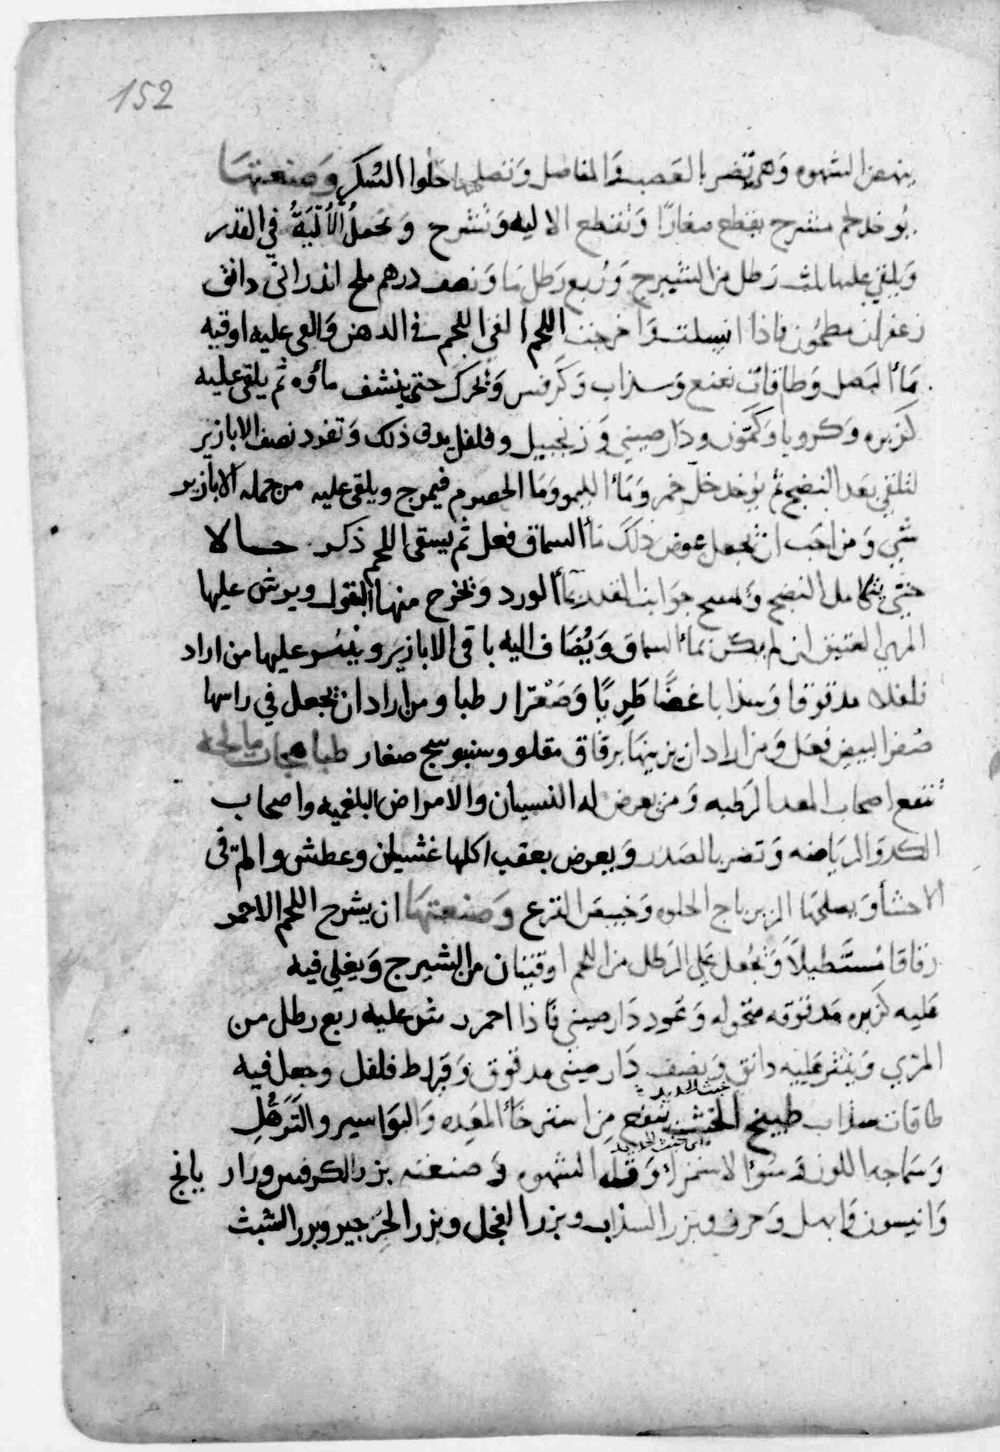 152
ينهض الشهوه وهي تضر بالعصب والمفاصل وتصلحها حلوا السكر وصنعتها
يوخد لحم مشرح يقطع صغارا وتقطع الاليه وتشرح وتجعل الألية في القدر
ويلقى عليها ثلث رطل من الشيرج وربع رطل ما ونصف درهم ملح اندراني دانق
زعفران مطحون فاذا انسلت واخرجت اللحم القى اللحم في الدهن والقى عليه اوقيه
ماء البصل وطاقات نعنع وسداب وكرفس وتحرك حتى ينشف ماؤه ثم يلقى عليه
كزبره وكرويا وكمون ودارصيني وزنجبيل وفلفل يدق ذلك وتفرد نصف الابازير
لتلقى بعد النضج ثم يوخد خل خمر وماء الليمو وما الحصرم فيمزج ويلقى عليه من جمله الابازير
شي ومن احب ان يجعل عوض ذلك ماء السماق فعل ثم يسقى اللحم ذكر حالا
حتى يتكامل النضج وتمسح جوانب القدر بماء الورد وتخرج منها البقول ويرش عليها
المري العتيق ان لم يكن بماء السماق ويضاف اليه باقى الابازير وينثر عليها من اراد
فلفلا مدقوقا وسدابا غضا طريا وصعترا رطبا ومن اراد ان يجعل في راسها
صفر البيض فعل ومن اراد ان يزينها برقاق مقلو وسنبوسج صغار طباهجات مالحه
تنفع اصحاب المعد الرطبه ومن يعرض له النسيان والامراض البلغميه واصحاب
الكد والرياضه وتضر بالصدر ويعرض بعقب اكلها غشيان وعطش والم في
الاحشا ويصلحها الزيرباج الحلوه وخبيص القرع وصنعتها ان يشرح اللحم الاحمر
رقاقا مستطيلا ويجعل على الرطل من اللحم اوقيتان من الشيرج ويغلى فيه
عليه كزبره مدقوقه منخوله وعود دارصيني فاذا احمر رش عليه ربع رطل من
المري وينثر عليه دانق ونصف دارصيني مدقوق وقيراط فلفل وجعل فيه
طاقات سداب طبيخ الخبث ينفع من استرخاء المعده والبواسير والترهل
خبث الحديد
اى خبث الحديد
وسماجه اللون وسوء الاستمراء وقله الشهوه وصنعته بزر الكرفس ورازيانج
وانيسون وابهل وحرف وبزر السداب وبزر الفجل وبزر الجرجير وبزر الشبث